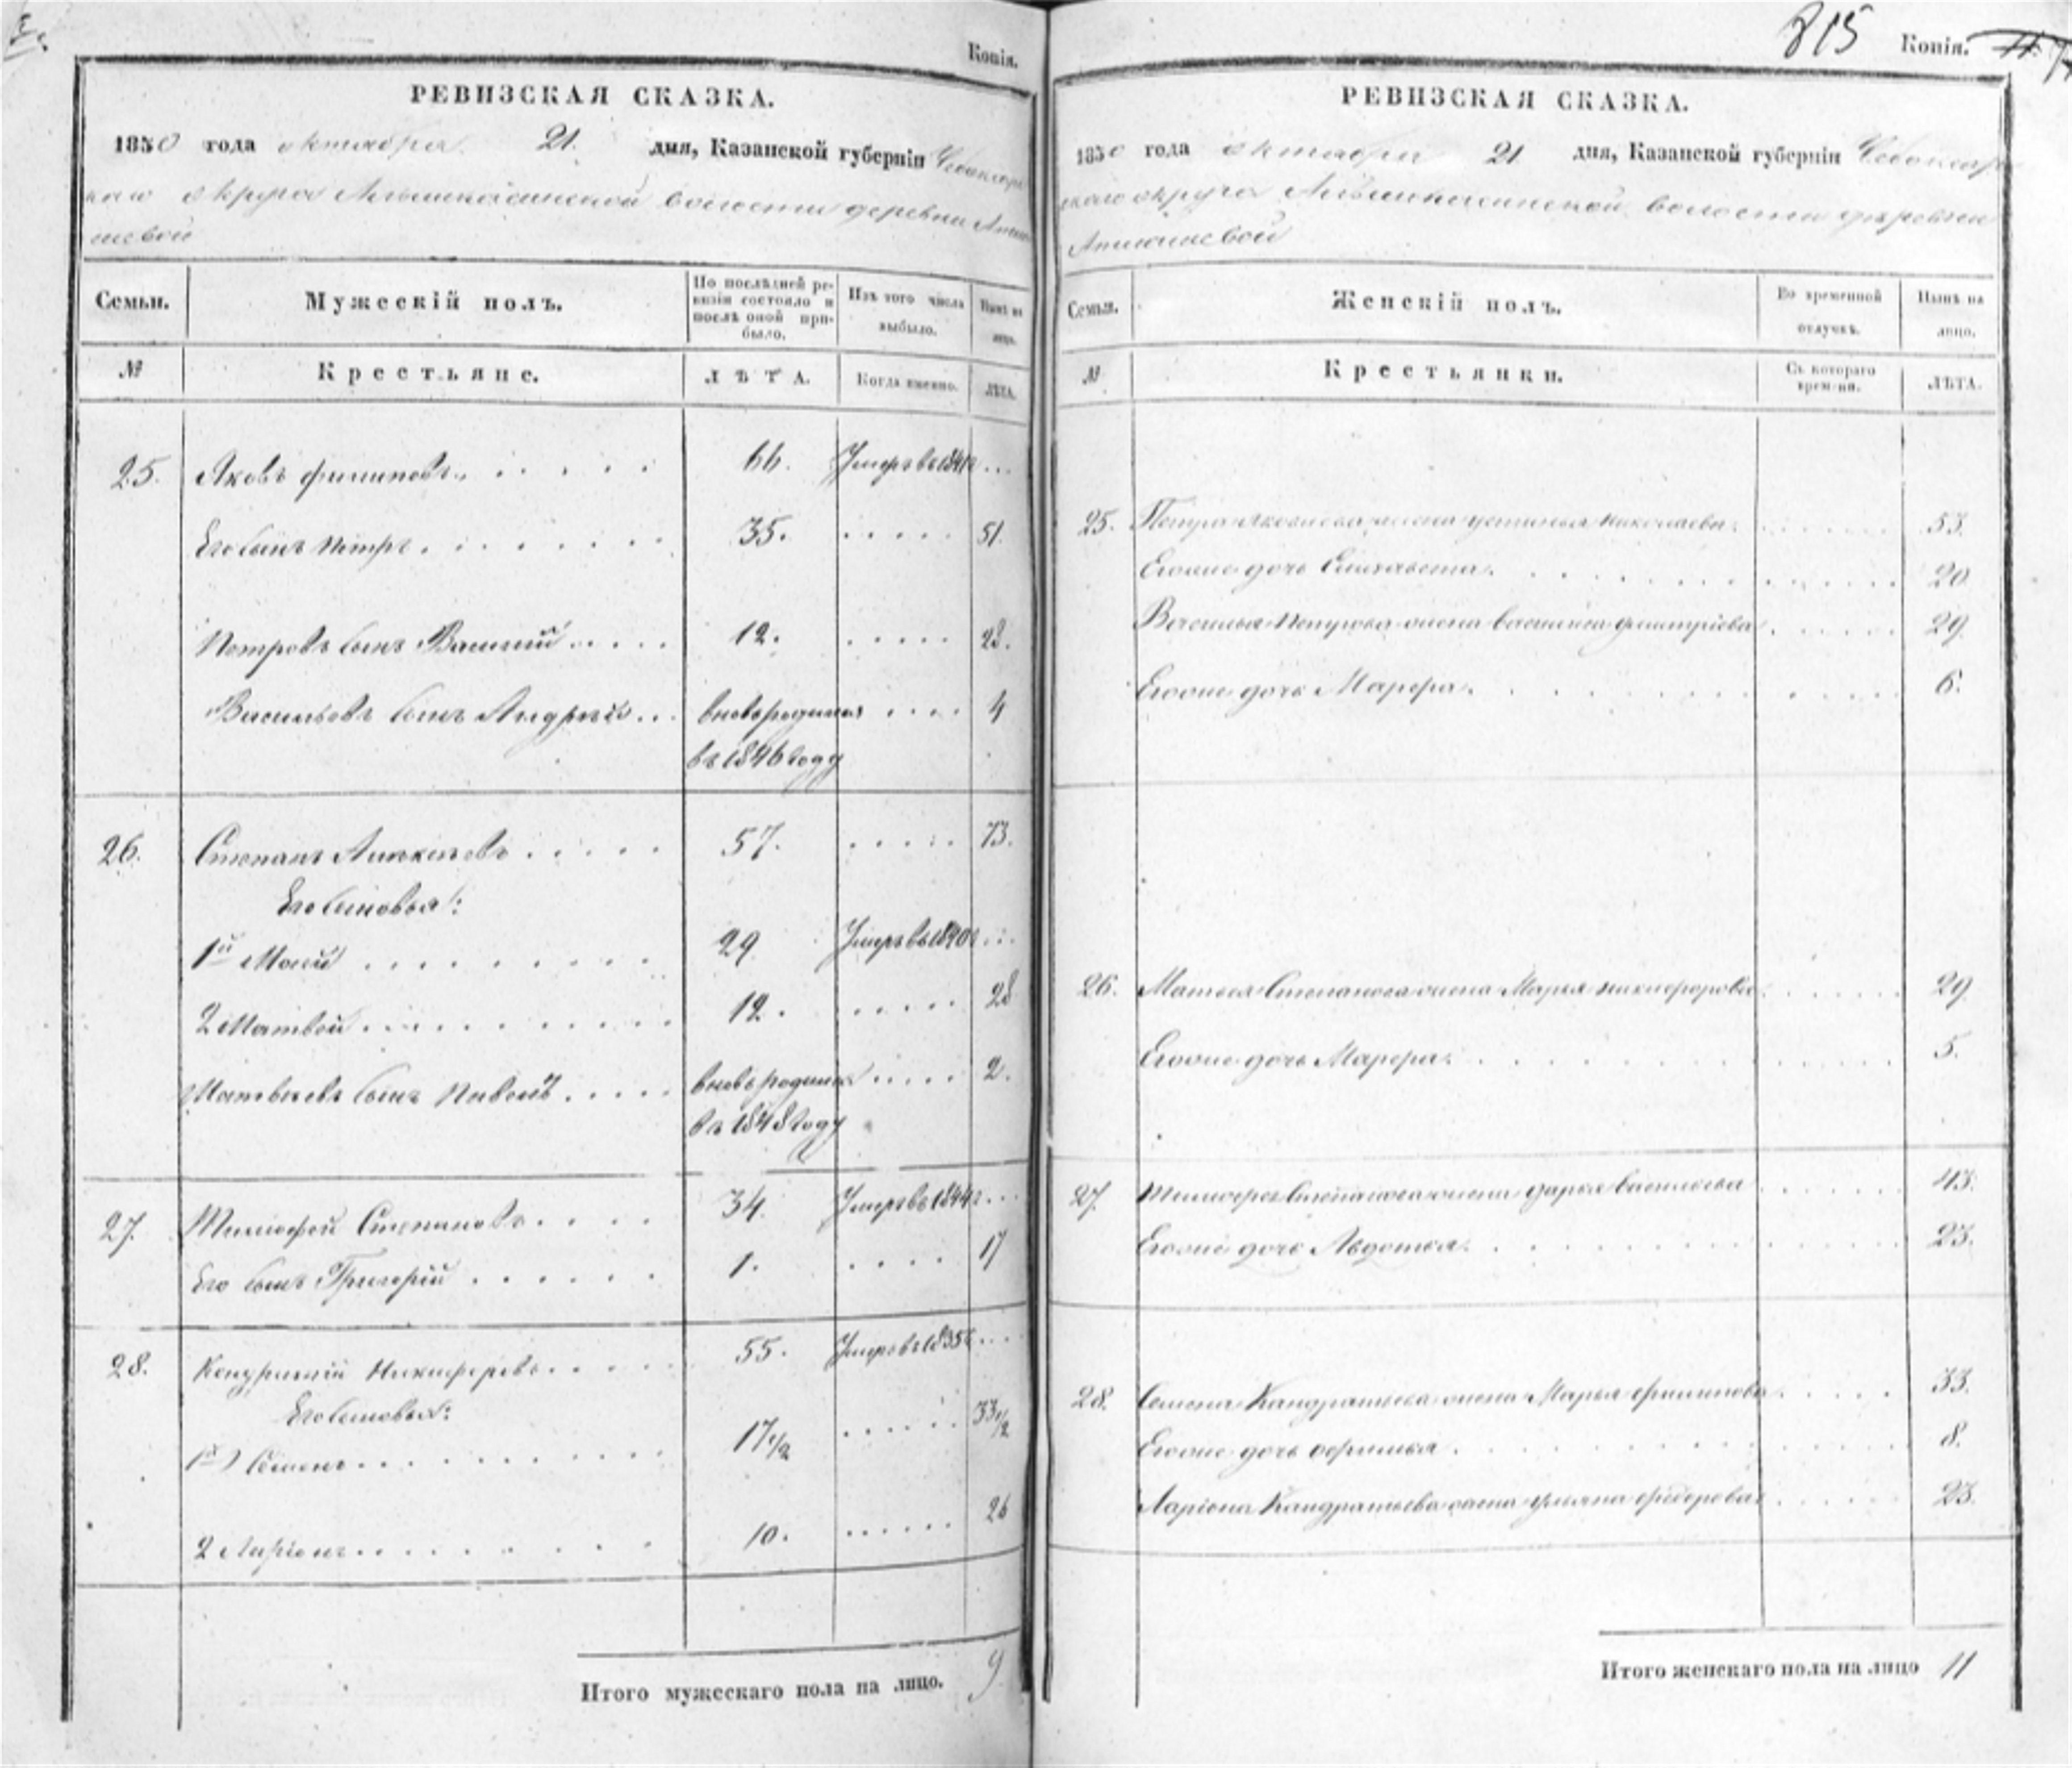 Копія.
РЕВИЗСКАЯ СКАЗКА.
1850 года октября 21. дня, Казанской губерніи Чебоксарс
каго округа волости деревни
шевой
Семьи.
Мужескій полъ.
По послѣдней ре-
визіи состояло и
послѣ оной при-
было.
Изъ того числа
выбыло.
Нынѣ на
лицо.
№
Крестьяне.
ЛѢТА.
Когда именно.
ЛѢТА.
25. Яковъ Филиповъ 66. Умеръ въ 1841г
Его сынъ Петръ 35. 51.
Петровъ сынъ Василий 12. 28.
Васильевъ сынъ Андрей вновьрожден 4
въ 1846 году
26. Степанъ Алексѣевъ 57. 73.
Его сыновья:
1й 29 Умеръ въ 1840г
2 Матвей 12. 28
Матвѣевъ сынъ вновьрожден 2.
въ 1848 году
27. Тимофей Степановъ 34. Умеръ въ 1844г
Его сынъ Григорій 1. 17
28. Кондратій Никифоровъ 55. Умеръ въ 1835г
Его сыновья:
1й Семенъ 17 1/2 33 1/2
2 Ларіонъ 10. 26
Итого мужескаго пола на лицо. 9
815
Копія.
РЕВИЗСКАЯ СКАЗКА.
1850 года октября 21 дня, Казанской губерніи Чебоксарс
каго округа волости деревни
Семьи.
Женскій полъ.
Во временной
отлучкѣ.
Нынѣ на
лицо.
№
Крестьянки.
Съ котораго
времени.
ЛѢТА.
25. Петра Яковлева жена Устинья Николаева 53.
Егоже дочь Елизавета 20
Василья Петрова жена Василиса Дмитріева 29.
Егоже дочь Марфа 6.
26. Матвея Степанова жена Марья Никифорова 29
Егоже дочь Марфа 5.
27. Тимофея Степанова жена Дарья Васильева 43.
Егоже дочь Авдотья 23.
28. Семена Кандратьева жена Марья Филипова 33.
Егоже дочь Офимья 8.
Ларіона Кандратьева жена Ульяна Федорова 23.
Итого женскаго пола на лицо 11